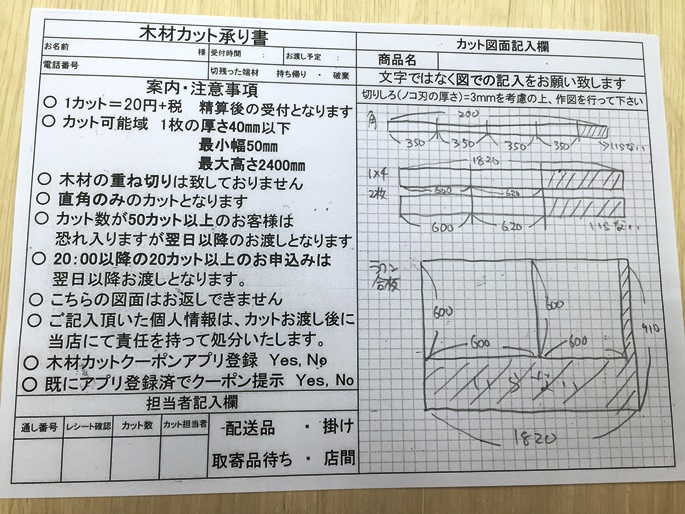 木材カット承り書
お名前 様 受付時間： : お渡し予定： :
電話番号 切残った端材 持ち帰り ・ 破棄
案内・注意事項
○ 1カット＝20円+税 精算後の受付となります
○ カット可能域 1枚の厚さ40mm以下
最小幅50mm
最大高さ2400mm
○ 木材の重ね切りは致しておりません
○ 直角のみのカットとなります
○ カット数が50カット以上のお客様は
恐れ入りますが翌日以降のお渡しとなります
○ 20:00以降の20カット以上のお申込みは
翌日以降お渡しとなります。
○ こちらの図面はお返しできません
○ ご記入頂いた個人情報は、カットお渡し後に
当店にて責任を持って処分いたします。
○ 木材カットクーポンアプリ登録 Yes, No
○ 既にアプリ登録済でクーポン提示 Yes, No
担当者記入欄
通し番号 レシート確認 カット数 カット担当者
配送品 ・ 掛け
取寄品待ち ・ 店間
カット図面記入欄
商品名
文字ではなく図での記入をお願い致します
切りしろ(ノコ刃の厚さ)=3mmを考慮の上、作図を行って下さい
角
200
350 350 350 350
いらない
1820
1×4
2枚
600 620
600 620
いらない
ラワン
合板
600 600
600 600
910
いらない
1820